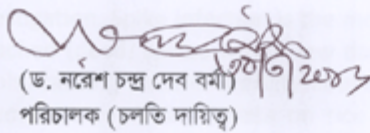 (ড. নরেশ চন্দ্র দেব বর্মা)
পরিচালক (চলতি দায়িত্ব)